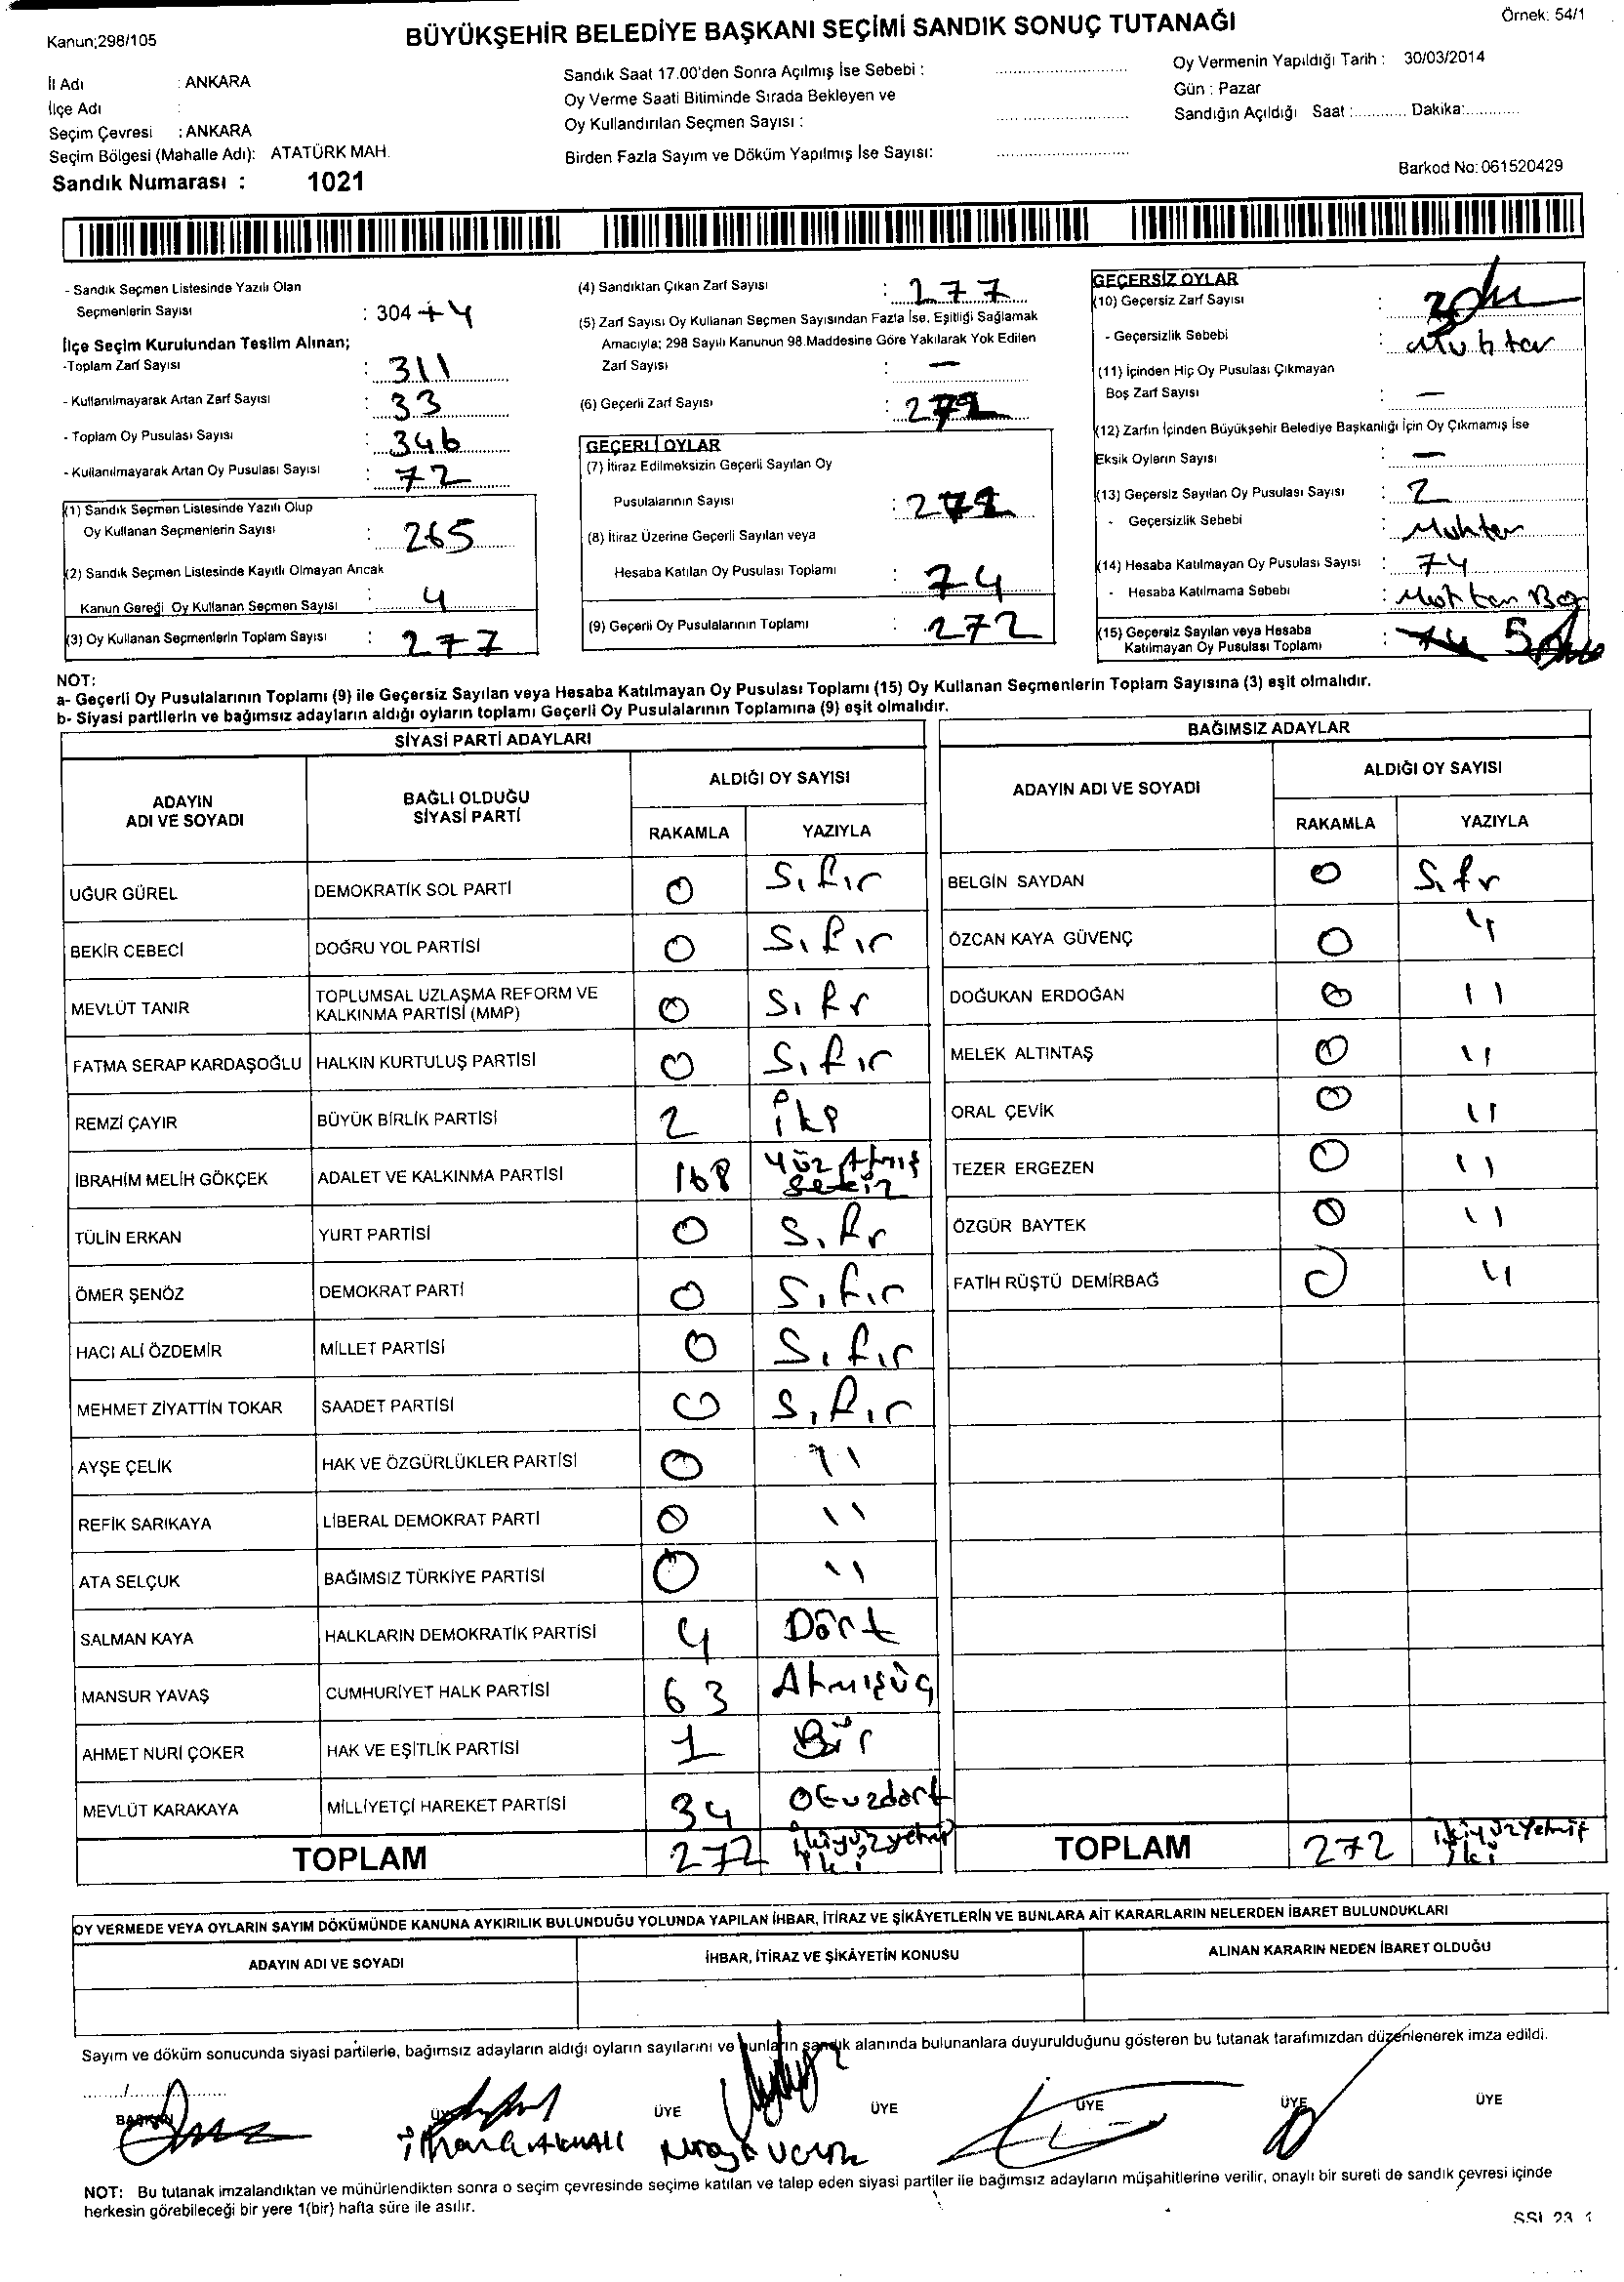 Kanun;298/105
BÜYÜKŞEHİR BELEDİYE BAŞKANI SEÇİMİ SANDIK SONUÇ TUTANAĞI
Örnek: 54/1
İl Adı : ANKARA
İlçe Adı :
Seçim Çevresi : ANKARA
Seçim Bölgesi (Mahalle Adı): ATATÜRK MAH.
Sandık Numarası : 1021
Sandık Saat 17.00'den Sonra Açılmış İse Sebebi :
Oy Verme Saati Bitiminde Sırada Bekleyen ve
Oy Kullandırılan Seçmen Sayısı :
Birden Fazla Sayım ve Döküm Yapılmış İse Sayısı:
Oy Vermenin Yapıldığı Tarih : 30/03/2014
Gün : Pazar
Sandığın Açıldığı Saat :............ Dakika:............
Barkod No: 061520429
- Sandık Seçmen Listesinde Yazılı Olan
Seçmenlerin Sayısı : 304 + 4
İlçe Seçim Kurulundan Teslim Alınan;
-Toplam Zarf Sayısı : 311
- Kullanılmayarak Artan Zarf Sayısı : 33
- Toplam Oy Pusulası Sayısı : 346
- Kullanılmayarak Artan Oy Pusulası Sayısı : 72
(1) Sandık Seçmen Listesinde Yazılı Olup
Oy Kullanan Seçmenlerin Sayısı : 265
(2) Sandık Seçmen Listesinde Kayıtlı Olmayan Ancak
Kanun Gereği Oy Kullanan Seçmen Sayısı : 4
(3) Oy Kullanan Seçmenlerin Toplam Sayısı : 277
(4) Sandıktan Çıkan Zarf Sayısı : 277
(5) Zarf Sayısı Oy Kullanan Seçmen Sayısından Fazla İse, Eşitliği Sağlamak
Amacıyla; 298 Sayılı Kanunun 98.Maddesine Göre Yakılarak Yok Edilen
Zarf Sayısı : —
(6) Geçerli Zarf Sayısı : 272
GEÇERLİ OYLAR
(7) İtiraz Edilmeksizin Geçerli Sayılan Oy
Pusulalarının Sayısı : 272
(8) İtiraz Üzerine Geçerli Sayılan veya
Hesaba Katılan Oy Pusulası Toplamı : 74
(9) Geçerli Oy Pusulalarının Toplamı : 272
GEÇERSİZ OYLAR
(10) Geçersiz Zarf Sayısı :
- Geçersizlik Sebebi : Muhtar
(11) İçinden Hiç Oy Pusulası Çıkmayan
Boş Zarf Sayısı : —
(12) Zarfın İçinden Büyükşehir Belediye Başkanlığı İçin Oy Çıkmamış İse
Eksik Oyların Sayısı : —
(13) Geçersiz Sayılan Oy Pusulası Sayısı : 2
- Geçersizlik Sebebi : Muhtar
(14) Hesaba Katılmayan Oy Pusulası Sayısı : 74
- Hesaba Katılmama Sebebi :
(15) Geçersiz Sayılan veya Hesaba
Katılmayan Oy Pusulası Toplamı : 5
NOT:
a- Geçerli Oy Pusulalarının Toplamı (9) ile Geçersiz Sayılan veya Hesaba Katılmayan Oy Pusulası Toplamı (15) Oy Kullanan Seçmenlerin Toplam Sayısına (3) eşit olmalıdır.
b- Siyasi partilerin ve bağımsız adayların aldığı oyların toplamı Geçerli Oy Pusulalarının Toplamına (9) eşit olmalıdır.
SİYASİ PARTİ ADAYLARI
ADAYIN ADI VE SOYADI
BAĞLI OLDUĞU SİYASİ PARTİ
ALDIĞI OY SAYISI
RAKAMLA YAZIYLA
UĞUR GÜREL DEMOKRATİK SOL PARTİ 0 Sıfır
BEKİR CEBECİ DOĞRU YOL PARTİSİ 0 Sıfır
MEVLÜT TANIR TOPLUMSAL UZLAŞMA REFORM VE KALKINMA PARTİSİ (MMP) 0 Sıfr
FATMA SERAP KARDAŞOĞLU HALKIN KURTULUŞ PARTİSİ 0 Sıfır
REMZİ ÇAYIR BÜYÜK BİRLİK PARTİSİ 2 iki
İBRAHİM MELİH GÖKÇEK ADALET VE KALKINMA PARTİSİ 168 Yüz Atmış Sekiz
TÜLİN ERKAN YURT PARTİSİ 0 Sıfr
ÖMER ŞENÖZ DEMOKRAT PARTİ 0 Sıfır
HACI ALİ ÖZDEMİR MİLLET PARTİSİ 0 Sıfır
MEHMET ZİYATTİN TOKAR SAADET PARTİSİ 0 Sıfır
AYŞE ÇELİK HAK VE ÖZGÜRLÜKLER PARTİSİ 0 11
REFİK SARIKAYA LİBERAL DEMOKRAT PARTİ 0 11
ATA SELÇUK BAĞIMSIZ TÜRKİYE PARTİSİ 0 11
SALMAN KAYA HALKLARIN DEMOKRATİK PARTİSİ 4 Dört
MANSUR YAVAŞ CUMHURİYET HALK PARTİSİ 63 Atmışüç
AHMET NURİ ÇOKER HAK VE EŞİTLİK PARTİSİ 1 Bir
MEVLÜT KARAKAYA MİLLİYETÇİ HAREKET PARTİSİ 34 Otuzdört
TOPLAM 272 ikiyüzyetmiş iki
BAĞIMSIZ ADAYLAR
ADAYIN ADI VE SOYADI
ALDIĞI OY SAYISI
RAKAMLA YAZIYLA
BELGİN SAYDAN 0 Sıfr
ÖZCAN KAYA GÜVENÇ 0 11
DOĞUKAN ERDOĞAN 0 11
MELEK ALTINTAŞ 0 11
ORAL ÇEVİK 0 11
TEZER ERGEZEN 0 11
ÖZGÜR BAYTEK 0 11
FATİH RÜŞTÜ DEMİRBAĞ 0 11
TOPLAM 272 ikiyüzyetmiş iki
OY VERMEDE VEYA OYLARIN SAYIM DÖKÜMÜNDE KANUNA AYKIRILIK BULUNDUĞU YOLUNDA YAPILAN İHBAR, İTİRAZ VE ŞİKÂYETLERİN VE BUNLARA AİT KARARLARIN NELERDEN İBARET BULUNDUKLARI
ADAYIN ADI VE SOYADI İHBAR, İTİRAZ VE ŞİKÂYETİN KONUSU ALINAN KARARIN NEDEN İBARET OLDUĞU
Sayım ve döküm sonucunda siyasi partilerle, bağımsız adayların aldığı oyların sayılarını ve bunların sandık alanında bulunanlara duyurulduğunu gösteren bu tutanak tarafımızdan düzenlenerek imza edildi.
......../......../............
BAŞKAN ÜYE ÜYE ÜYE ÜYE ÜYE ÜYE
NOT: Bu tutanak imzalandıktan ve mühürlendikten sonra o seçim çevresinde seçime katılan ve talep eden siyasi partiler ile bağımsız adayların müşahitlerine verilir, onaylı bir sureti de sandık çevresi içinde
herkesin görebileceği bir yere 1(bir) hafta süre ile asılır.